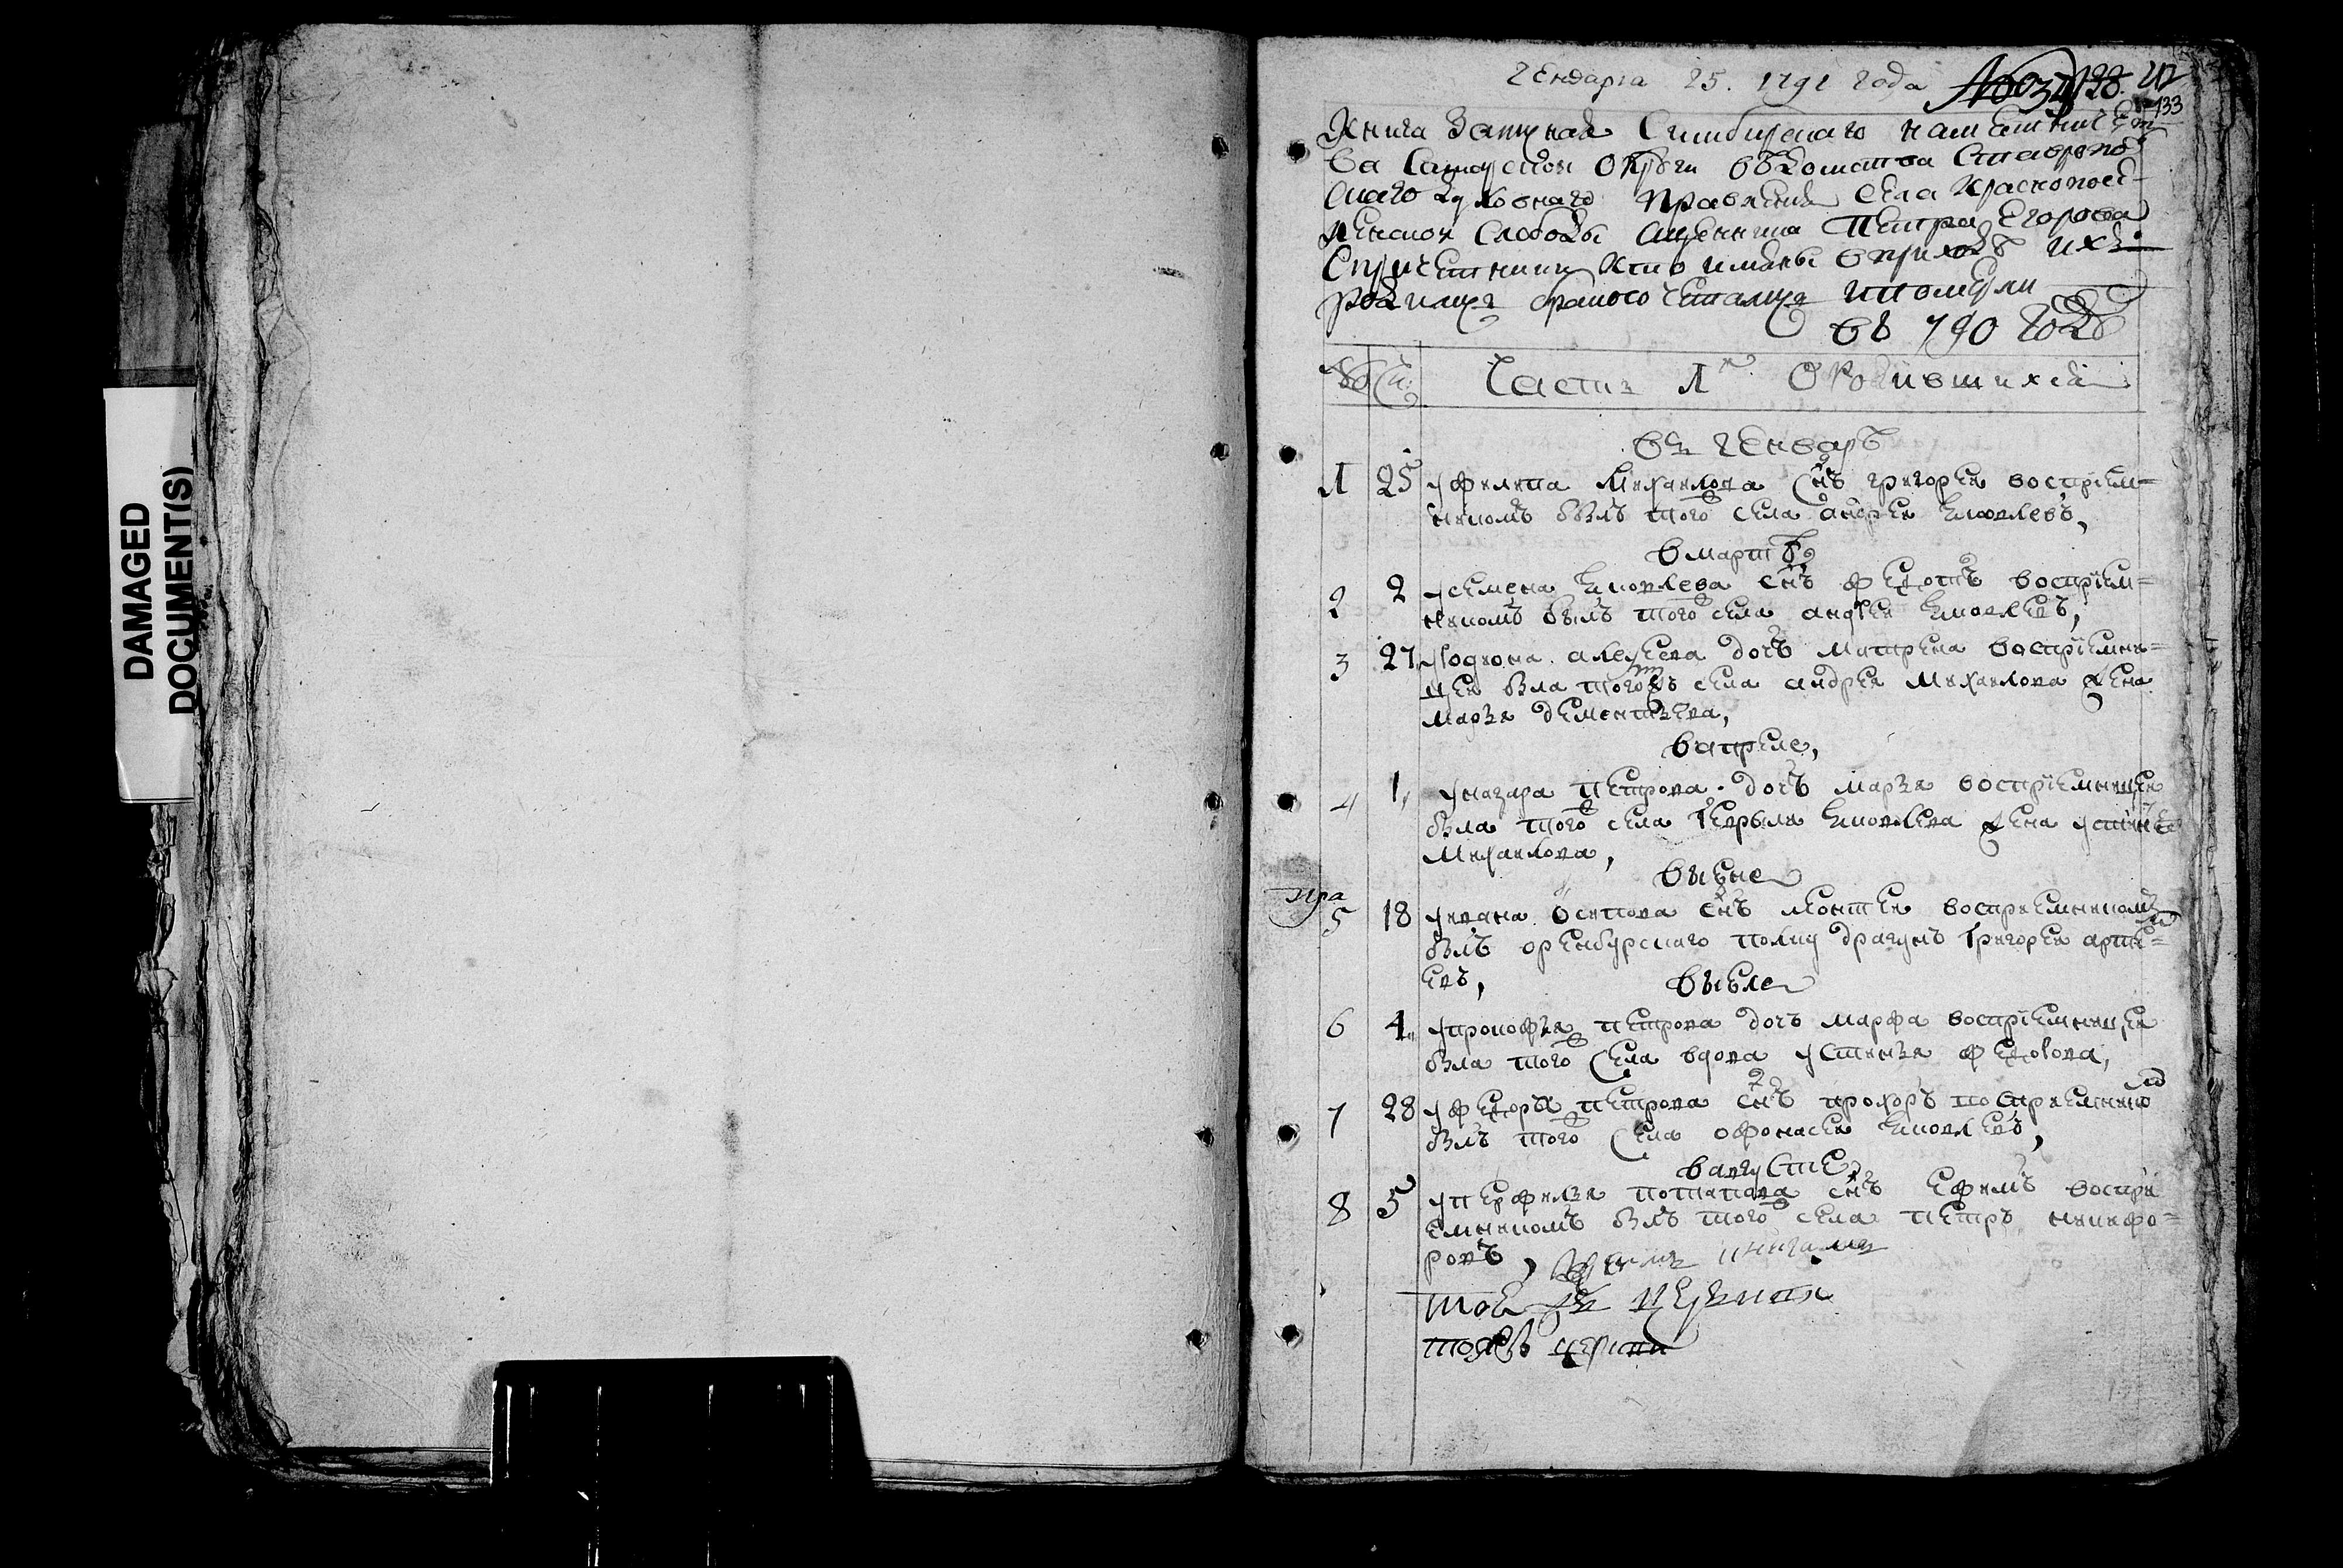 DAMAGED
DOCUMENT(S)
Генваря 25. 1791 года 198
133
Книга Записная Симбирскаго намесничест
ва Самарской округи ведомства Ставропол
скаго духовнаго правления Села Краснопосе
ленской слободы Священника Петра Егорова
Спричетники кто имяны вприходе ихъ
родилися бракосочеталися ипомерли
въ 790 годе
Чи: Часть 1я О Родившихся
въ Генваре
1 25 уфилипа Михаилова снъ григореи восприем=
никомъ былъ того села андреи Яковлевъ,
вмарте
2 2 усемена Яковлева снъ Федотъ восприем=
никомъ былъ того села андреи Яковлевъ,
3 27 уродиона алексеева дочь матрена восприемни=
цеи была тогожъ села андрея Михаилова жена
марья дементьева,
вапреле,
4 1, уназара петрова дочь марья восприемницеи
была того села Гаврила Яковлева жена устинья
Михаилова,
виюне
5 18 уивана Осипова снъ леонтеи восприемникомъ
былъ оренбурскаго полку драгунъ Григореи
евъ,
виюле
6 4, упрокофья петрова дочь марфа восприемницеи
была того села вдова устинья Федотова,
7 28 уФедора петрова снъ прохоръ восприемник
былъ того Села офонасеи Яковлевъ,
вавгусте
8 5 уперфилья потапова снъ Ефимъ воспри
емникомъ былъ того села петръ никифо=
ровъ,
тоя же церкви
тояжъ церкви